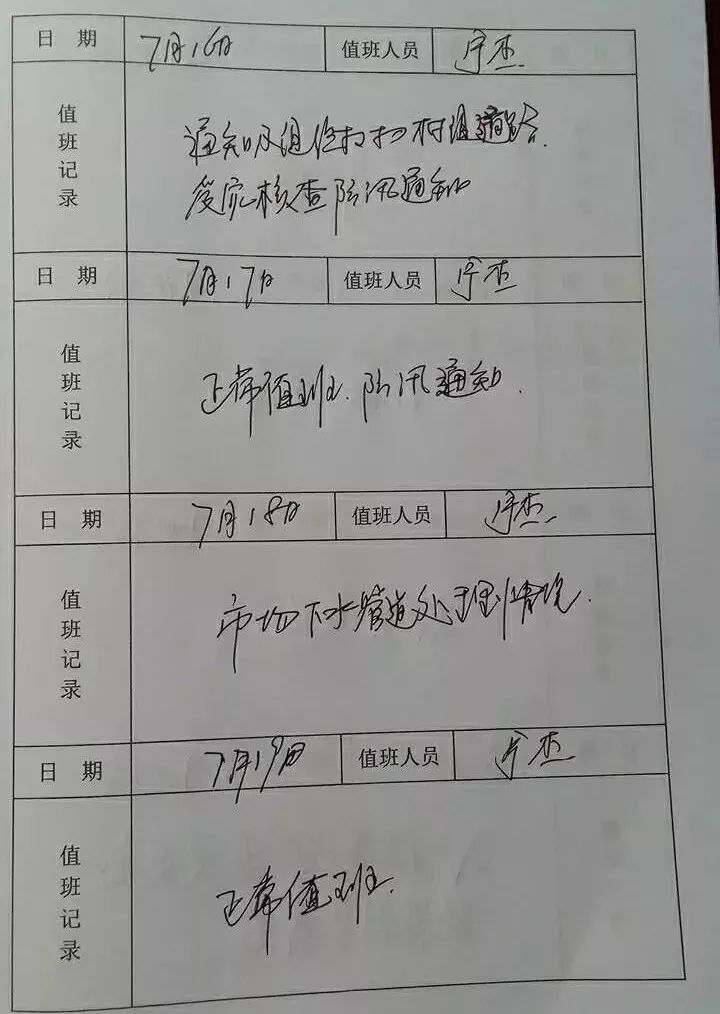 日 期 7月16日 值班人员 宁杰
值班记录
通知及组织打扫村组道路.
核查防汛通知
日 期 7月17日 值班人员 宁杰
值班记录
正常值班. 防汛通知.
日 期 7月18日 值班人员 宁杰
值班记录
市场下水管道处理情况.
日 期 7月19日 值班人员 宁杰
值班记录
正常值班.